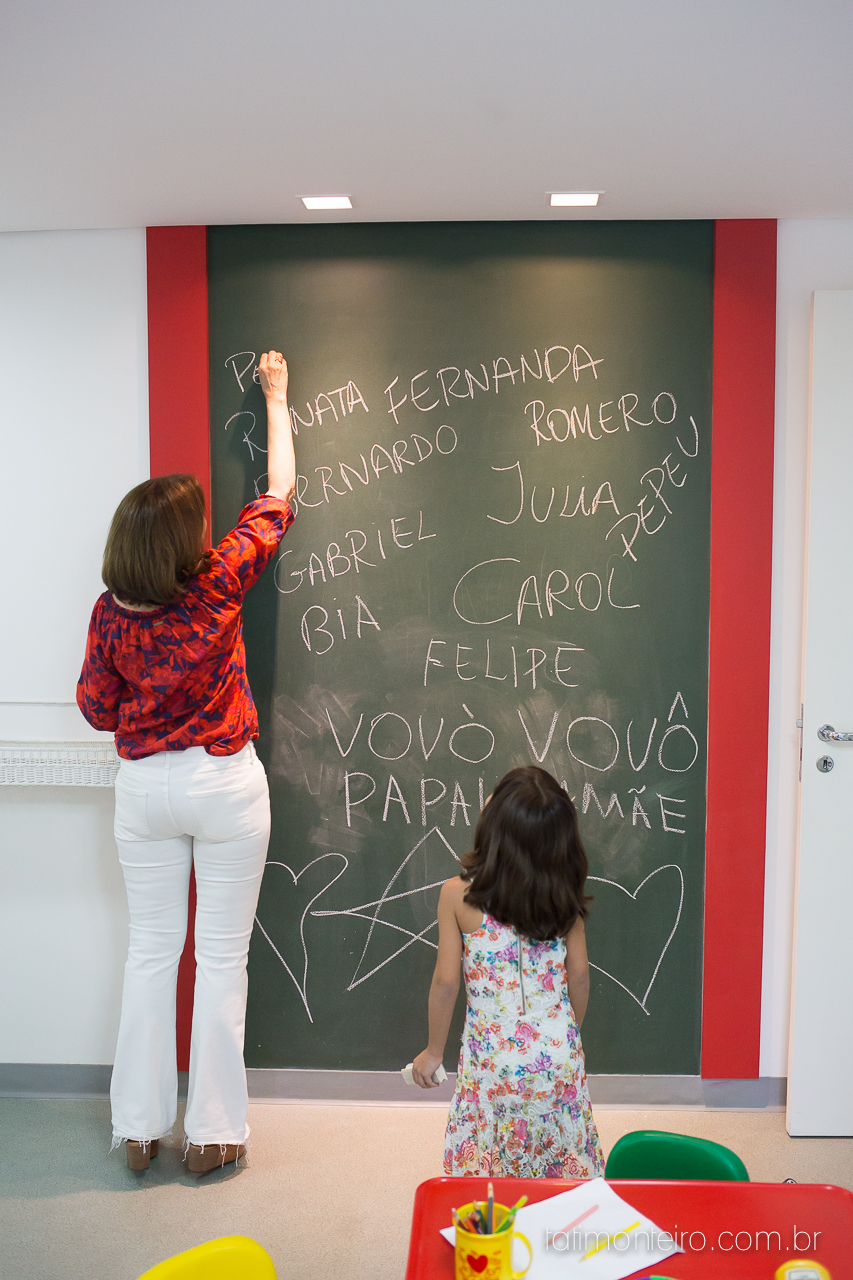 PE
RENATA FERNANDA
BERNARDO ROMERO
JULIA PEPEU
GABRIEL
CAROL
BIA
FELIPE
VOVÒ VOVÔ
PAPAI MAMÃE
tatimonteiro.com.br